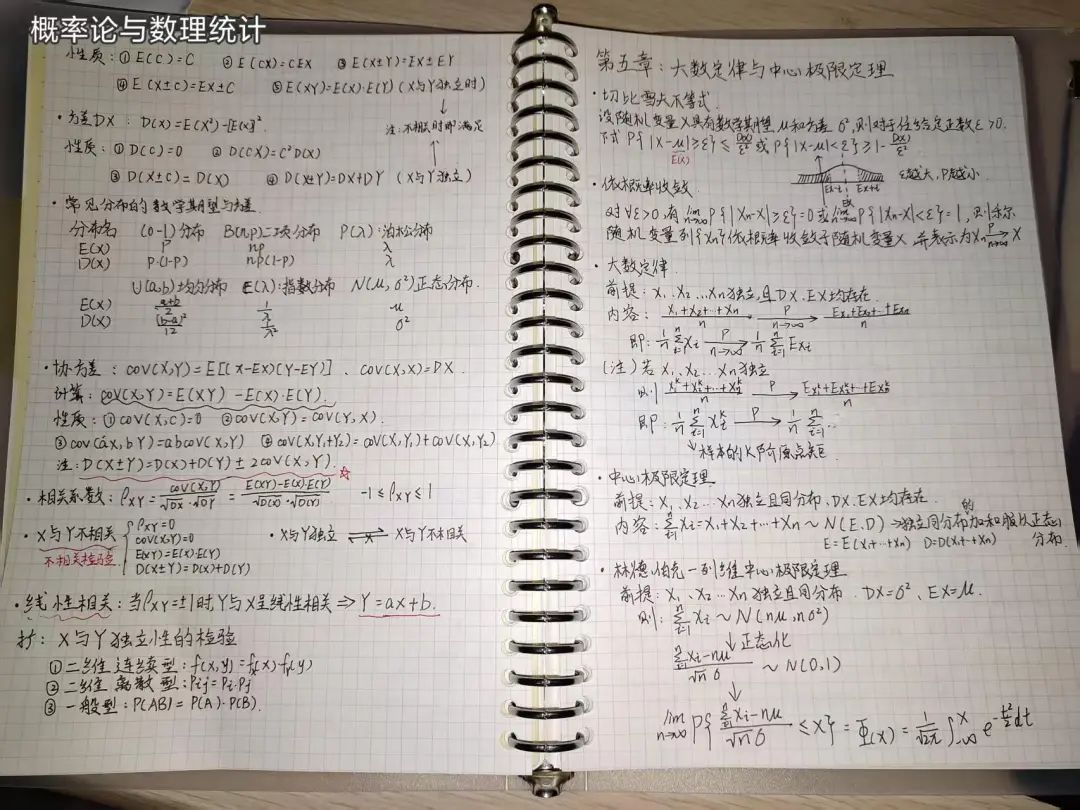 概率论与数理统计
性质：① E(C)=C ② E(CX)=CEX ③ E(X±Y)=EX±EY
④ E(X±C)=EX±C ⑤ E(XY)=E(X)·E(Y) (X与Y独立时)
·方差DX：D(X)=E(X²)-[E(X)]²
注：不相关时即满足
性质：① D(C)=0 ② D(CX)=C²D(X)
③ D(X±C)=D(X) ④ D(X±Y)=DX+DY (X与Y独立)
·常见分布的数学期望与方差
分布名 (0-1)分布 B(n,p)二项分布 P(λ):泊松分布
E(X) P np λ
D(X) P·(1-P) np(1-p) λ
U(a,b)均匀分布 E(λ):指数分布 N(μ,σ²)正态分布
E(X) a+b/2 1/λ μ
D(X) (b-a)²/12 1/λ² σ²
·协方差：cov(X,Y)=E[(X-EX)(Y-EY)]、cov(X,X)=DX
计算：cov(X,Y)=E(XY)-E(X)·E(Y).
性质：① cov(X,C)=0 ② cov(X,Y)=cov(Y,X).
③ cov(aX,bY)=abcov(X,Y) ④ cov(X,Y₁+Y₂)=cov(X,Y₁)+cov(X,Y₂)
注：D(X±Y)=D(X)+D(Y)±2cov(X,Y). ☆
·相关系数：ρXY=cov(X,Y)/√DX·√DY = E(XY)-E(X)·E(Y)/√D(X)·√D(Y) -1≤ρXY≤1
·X与Y不相关 { ρXY=0
cov(X,Y)=0
E(XY)=E(X)·E(Y)
D(X±Y)=D(X)+D(Y)
不相关检验
·X与Y独立 ⇌ X与Y不相关
·线性相关：当ρXY=±1时Y与X呈线性相关⇒Y=ax+b.
扩：X与Y独立性的检验
① 二维连续型：f(x,y)=fx(x)·fY(y)
② 二维离散型：Pij=Pi·Pj
③ 一般型：P(AB)=P(A)·P(B).
第五章：大数定律与中心极限定理
·切比雪夫不等式.
设随机变量X具有数学期望μ和方差σ²,则对于任给定正数ε>0.
下式 P{|X-μ|≥ε}≤D(X)/ε² 或 P{|X-μ|<ε}≥1-D(X)/ε²
E(X)
ε越大,P越小
·依概率收敛.
或
对∀ε>0,有 lim n→∞ P{|Xn-X|≥ε}=0 或 lim n→∞ P{|Xn-X|<ε}=1,则称
随机变量列{Xn}依概率收敛于随机变量X 并表示为Xn P→ n→∞ X
·大数定律.
前提：X₁、X₂...Xn独立,且DX、EX均存在.
内容：X₁+X₂+···+Xn/n P→ n→∞ EX₁+EX₂+···+EXn/n
即：1/n Σ(i=1..n) Xi P→ n→∞ 1/n Σ(i=1..n) EXi
(注)若X₁、X₂...Xn独立
则 X₁ᵏ+X₂ᵏ+···+Xnᵏ/n P→ EX₁ᵏ+EX₂ᵏ+···+EXnᵏ/n
即：1/n Σ(i=1..n) Xiᵏ P→ 1/n Σ(i=1..n) ...
→样本的K阶原点矩
·中心极限定理
前提：X₁、X₂...Xn独立且同分布、DX、EX均存在.
内容：Σ(i=1..n) Xi=X₁+X₂+···+Xn~N(E,D)→独立同分布的加和服从正态
E=E(X₁+···+Xn) D=D(X₁+···+Xn) 分布.
·林德伯克—列维中心极限定理
前提：X₁、X₂...Xn独立且同分布. DX=σ²、EX=μ.
则：Σ(i=1..n) Xi~N(nμ,nσ²)
↓正态化
Σ(i=1..n) Xi-nμ/√n σ ~N(0,1)
↓
lim n→∞ P{Σ(i=1..n) Xi-nμ/√n σ ≤X}=Φ(X)=1/√2π ∫₋∞ˣ e^(-t²/2)dt